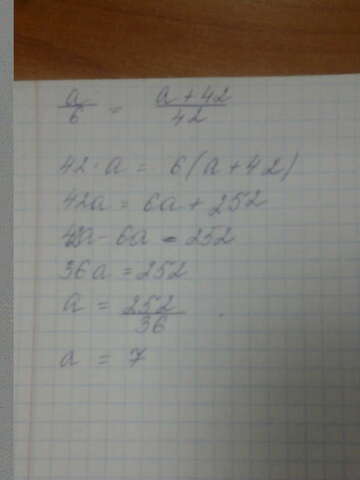 a/6 = (a + 42)/42
42 · a = 6(a + 42)
42a = 6a + 252
42a - 6a = 252
36a = 252
a = 252/36
a = 7